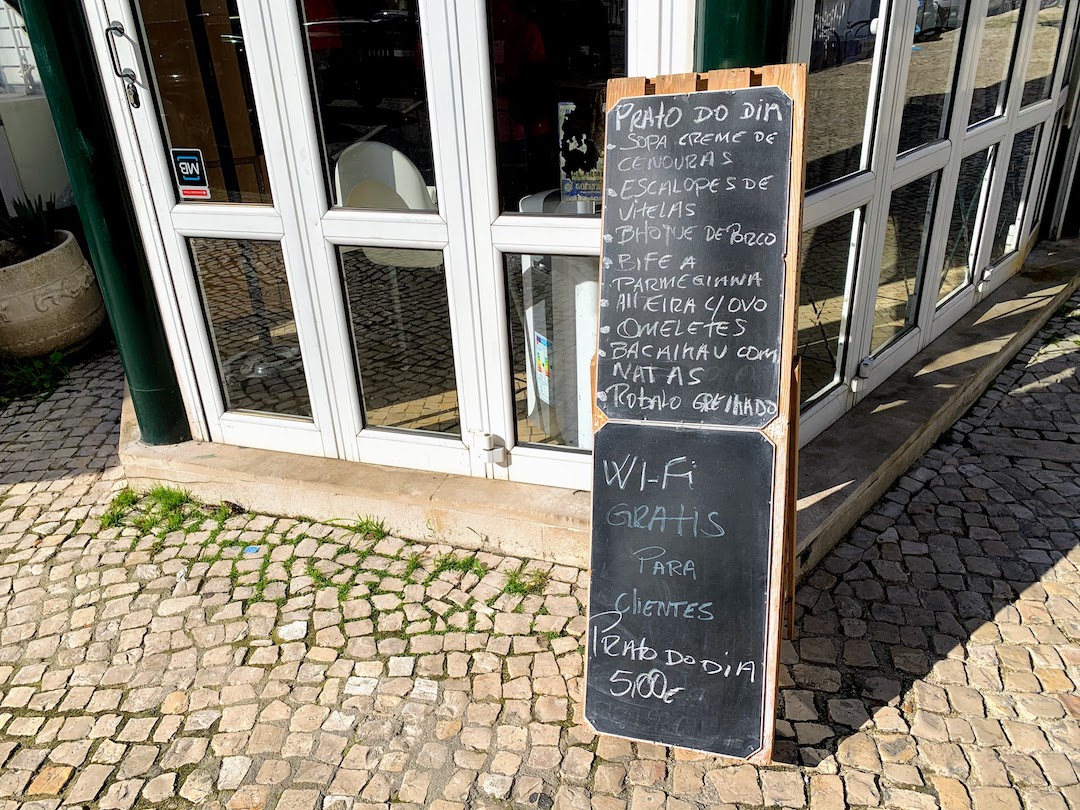 PRATO DO DIA
• SOPA CREME DE
CENOURAS
• ESCALOPES DE
VITELAS
• BITOQUE DE PORCO
• BIFE A
PARMEGIANA
• ALHEIRA C/OVO
• OMELETES
• BACALHAU COM
NATAS
• ROBALO GRELHADO
WI-Fi
GRATIS
PARA
CLIENTES
PRATO DO DIA
5,00€
MB